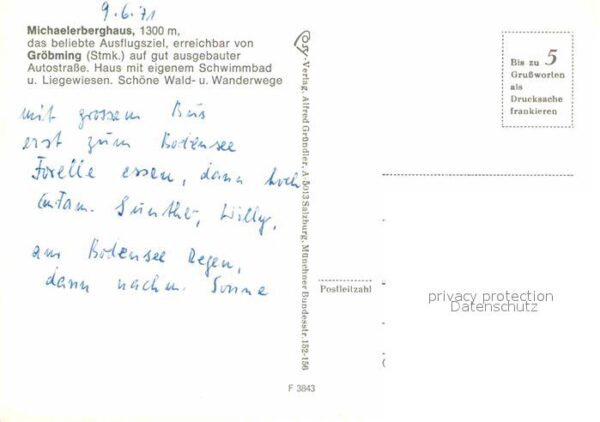 9.6.71
Michaelerberghaus, 1300 m,
das beliebte Ausflugsziel, erreichbar von
Gröbming (Stmk.) auf gut ausgebauter
Autostraße. Haus mit eigenem Schwimmbad
u. Liegewiesen. Schöne Wald- u. Wanderwege
mit grossem Bus
erst zum Bodensee
Forelle essen, dann hoch
Gunther, Willy,
am Bodensee Regen,
dann nachm. Sonne
Cosy-Verlag, Alfred Gründler, A-5013 Salzburg, Münchner Bundesstr. 152-156
F 3843
Bis zu 5
Grußworten
als
Drucksache
frankieren
Postleitzahl
privacy protection
Datenschutz